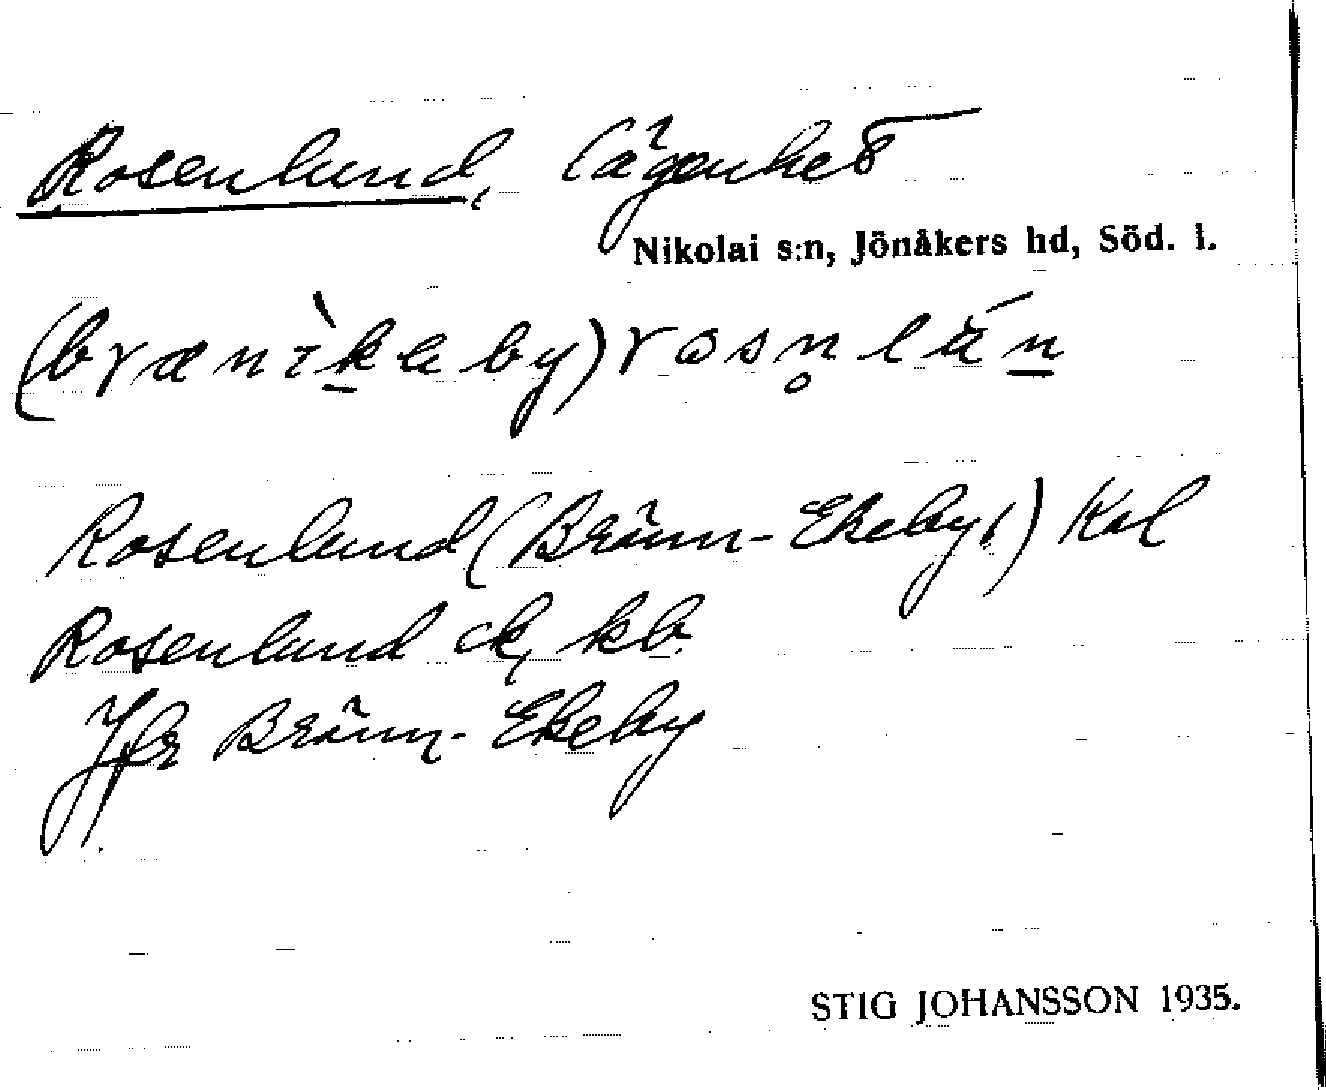 Rosenlund, lägenhet
Nikolai s:n, Jönåkers hd, Söd. l.
(brænìk̲eby)rosn̥lán̲
Rosenlund (Bränn-Ekeby,) Kal
Rosenlund ck, kb
Jfr Bränn-Ekeby
STIG JOHANSSON 1935.